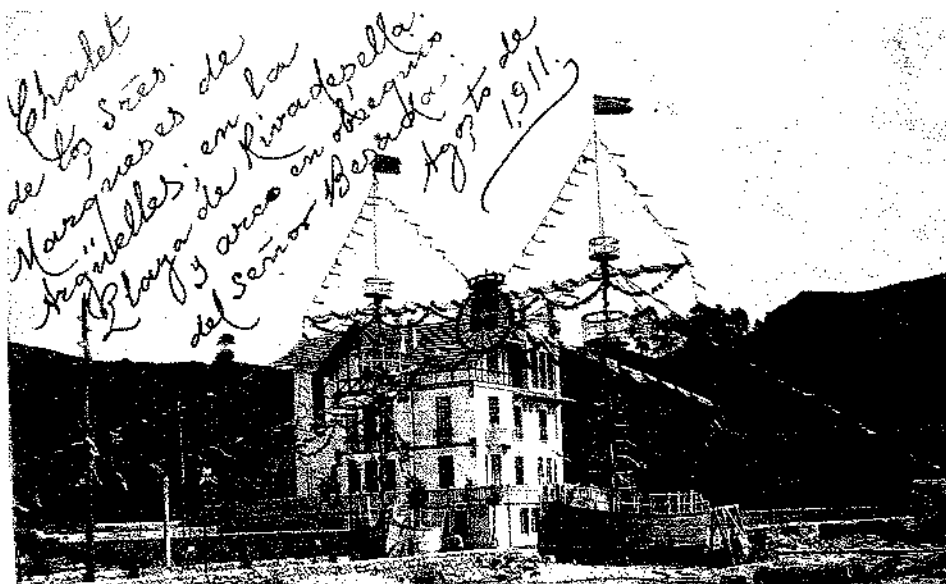 Chalet
de los Sres.
Marqueses de
Argüelles, en la
Playa de Rivadesella.
y arco en obsequio
del señor
Agosto de
1911.